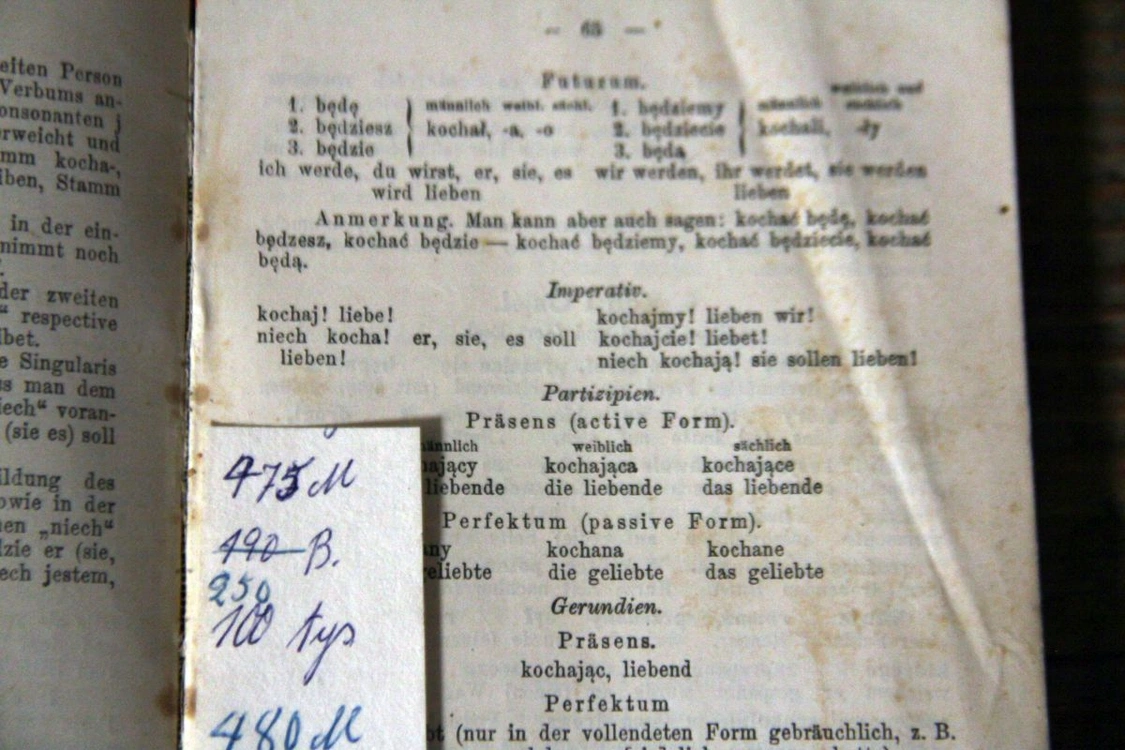 eiten Person
Verbums an-
onsonanten j
erweicht und
mm kocha-,
iben, Stamm
in der ein-
nimmt noch
der zweiten
“ respective
lbet.
e Singularis
us man dem
iech“ voran-
(sie es) soll
ildung des
owie in der
nen „niech“
dzie er (sie,
ech jestem,
— 63 —
Futurum.
1. będę männlich weibl. sächl. 1. będziemy männlich weiblich und sächlich
2. będziesz kochał, -a, -o 2. będziecie kochali, -ły
3. będzie 3. będą
ich werde, du wirst, er, sie, es wir werden, ihr werdet, sie werden
wird lieben lieben
Anmerkung. Man kann aber auch sagen: kochać będę, kochać
będzesz, kochać będzie — kochać będziemy, kochać będziecie, kochać
będą.
Imperativ.
kochaj! liebe! kochajmy! lieben wir!
niech kocha! er, sie, es soll kochajcie! liebet!
lieben! niech kochają! sie sollen lieben!
Partizipien.
Präsens (active Form).
männlich weiblich sächlich
ający kochająca kochające
liebende die liebende das liebende
Perfektum (passive Form).
any kochana kochane
geliebte die geliebte das geliebte
Gerundien.
Präsens.
kochając, liebend
Perfektum
bt (nur in der vollendeten Form gebräuchlich, z. B.
475 M
190 B.
250
100 tys
480 M